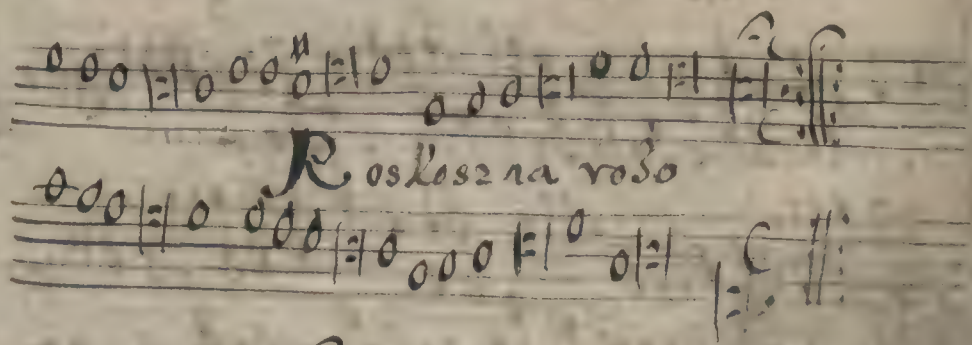 Roskoszna rośo